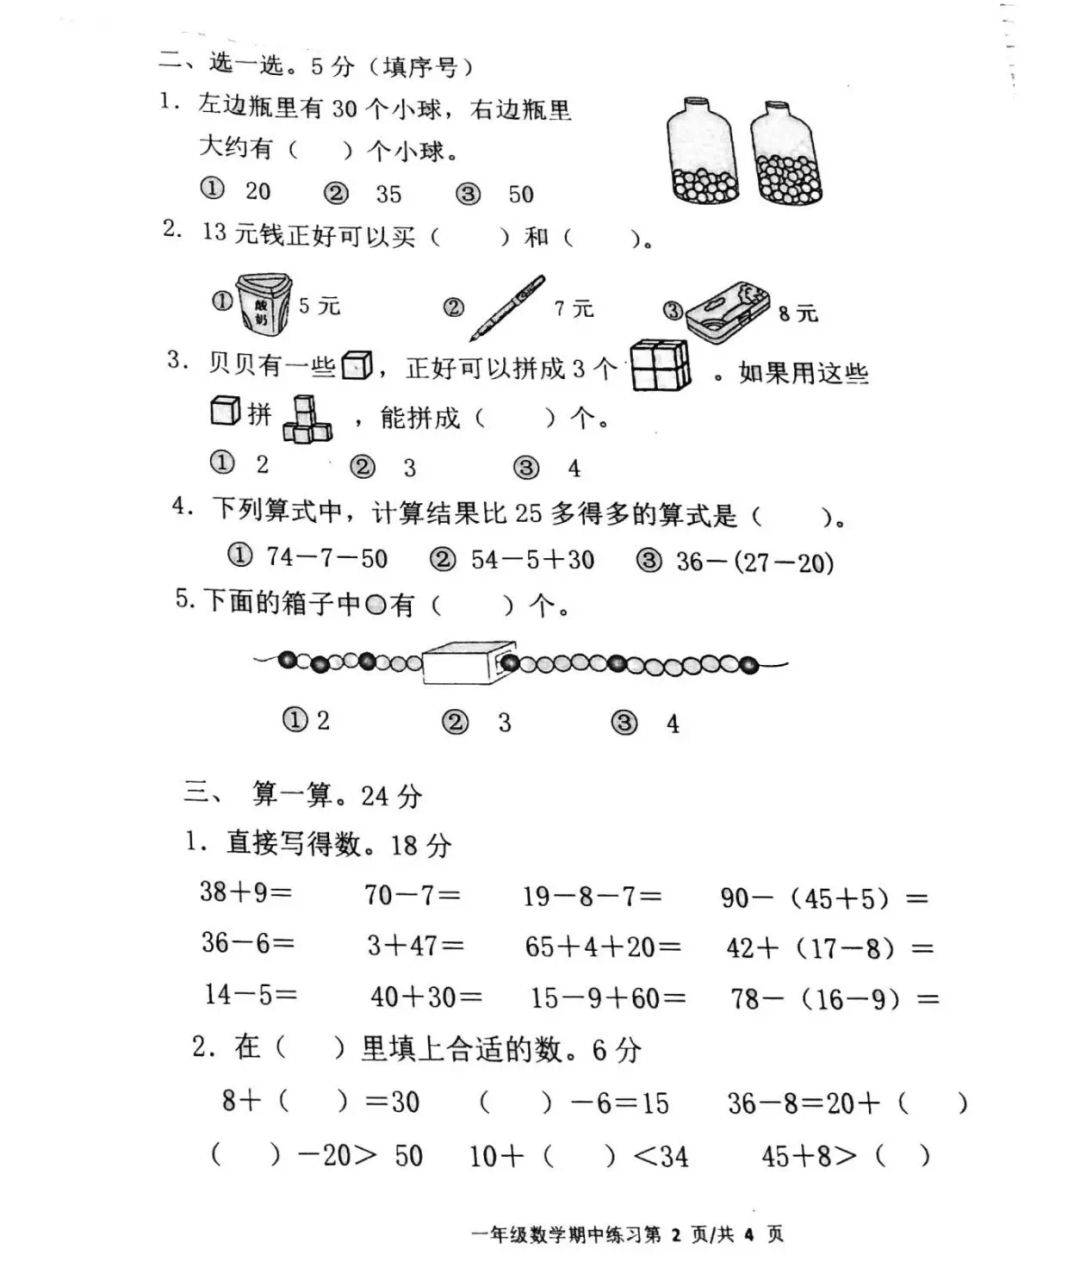 二、选一选。5 分（填序号）
1. 左边瓶里有 30 个小球，右边瓶里
大约有（　　）个小球。
① 20　② 35　③ 50
2. 13 元钱正好可以买（　　）和（　　）。
① 酸奶 5 元　② 7 元　③ 8 元
3. 贝贝有一些　，正好可以拼成 3 个　。如果用这些
拼　，能拼成（　　）个。
① 2　② 3　③ 4
4. 下列算式中，计算结果比 25 多得多的算式是（　　）。
① 74－7－50　② 54－5＋30　③ 36－(27－20)
5. 下面的箱子中○有（　　）个。
① 2　② 3　③ 4
三、 算一算。24 分
1. 直接写得数。18 分
38＋9＝　70－7＝　19－8－7＝　90－（45＋5）＝
36－6＝　3＋47＝　65＋4＋20＝　42＋（17－8）＝
14－5＝　40＋30＝　15－9＋60＝　78－（16－9）＝
2. 在（　　）里填上合适的数。6 分
8＋（　　）＝30　（　　）－6＝15　36－8＝20＋（　　）
（　　）－20＞ 50　10＋（　　）＜34　45＋8＞（　　）
一年级数学期中练习第 2 页/共 4 页